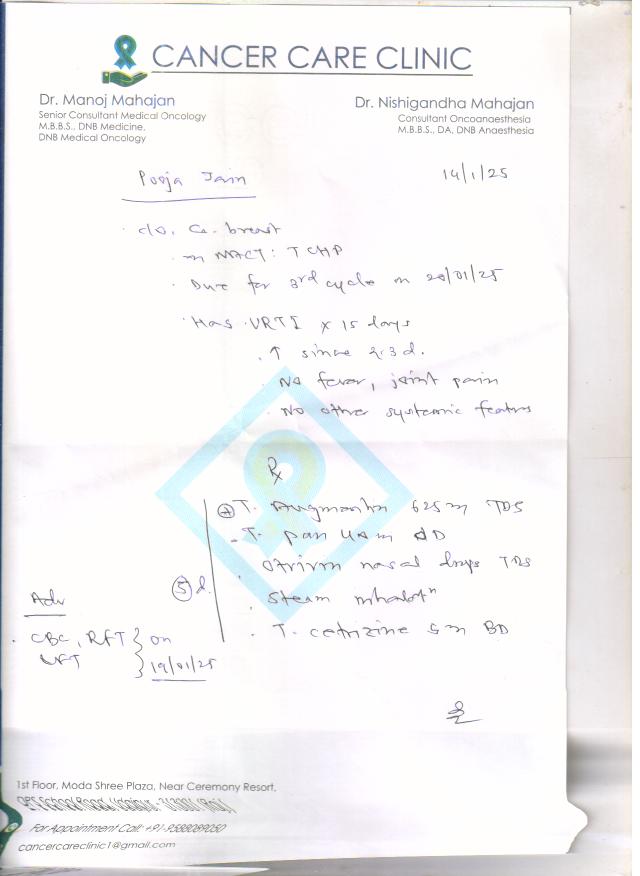 CANCER CARE CLINIC
Dr. Manoj Mahajan
Senior Consultant Medical Oncology
M.B.B.S., DNB Medicine,
DNB Medical Oncology
Dr. Nishigandha Mahajan
Consultant Oncoanaesthesia
M.B.B.S., DA, DNB Anaesthesia
Pooja Jain
14/1/25
Ca. breast
on NACT: TCHP
Due for 3rd cycle on 20/01/25
Has URTI x 15 days
↑ since 2-3 d.
No fever, joint pain
No other systemic features
Rx
T. Augmentin 625 m TDS
T. Pan 40 m OD
Otrivin nasal drops TDS
Steam inhalatn
T. cetrizine 5 m BD
5 d.
Adv
CBC, RFT
LFT
on
19/01/25
1st Floor, Moda Shree Plaza, Near Ceremony Resort,
For Appointment Call: +91-9588089050
cancercareclinic1@gmail.com